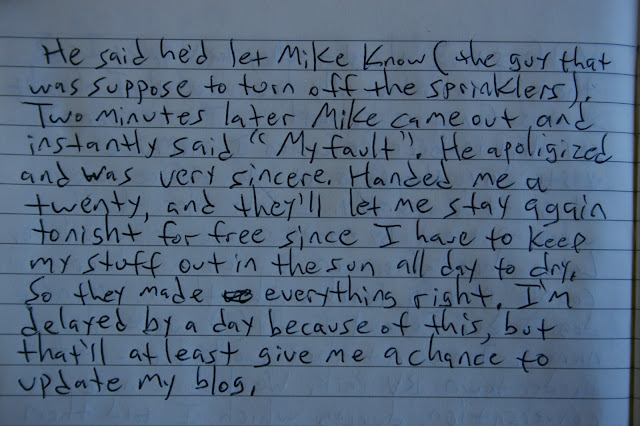 He said he'd let Mike know (the guy that
was suppose to turn off the sprinklers).
Two minutes later Mike came out and
instantly said "My fault". He apoligized
and was very sincere. Handed me a
twenty, and they'll let me stay again
tonight for free since I have to keep
my stuff out in the sun all day to dry.
So they made everything right. I'm
delayed by a day because of this, but
that'll at least give me a chance to
update my blog.